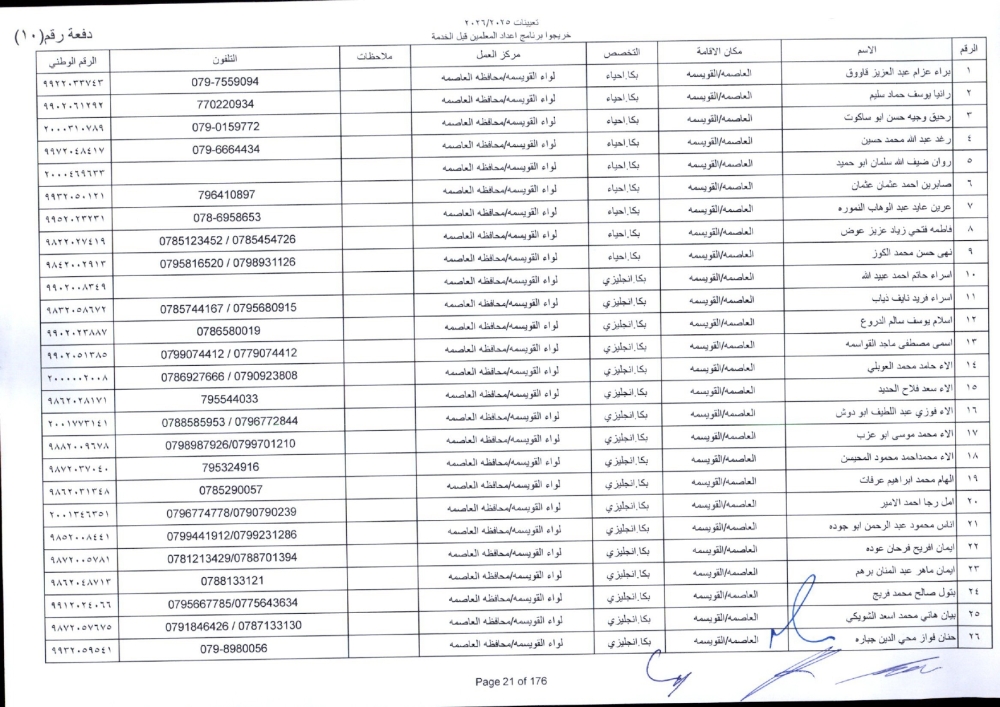 تعيينات ٢٠٢٦/٢٠٢٥
خريجوا برنامج اعداد المعلمين قبل الخدمة
دفعة رقم(١٠)
الرقم الاسم مكان الاقامة التخصص مركز العمل ملاحظات التلفون الرقم الوطني
١ براء عزام عبد العزيز قاووق العاصمه/القويسمه بكا.احياء لواء القويسمه/محافظه العاصمه 079-7559094 ٩٩٢٢٠٣٣٧٤٣
٢ رانيا يوسف حماد سليم العاصمه/القويسمه بكا.احياء لواء القويسمه/محافظه العاصمه 770220934 ٩٩٠٢٠٦١٢٩٢
٣ رحيق وجيه حسن ابو ساكوت العاصمه/القويسمه بكا.احياء لواء القويسمه/محافظه العاصمه 079-0159772 ٢٠٠٠٣١٠٧٨٩
٤ رغد عبد الله محمد حسين العاصمه/القويسمه بكا.احياء لواء القويسمه/محافظه العاصمه 079-6664434 ٩٩٧٢٠٤٨٤١٧
٥ روان ضيف الله سلمان ابو حميد العاصمه/القويسمه بكا.احياء لواء القويسمه/محافظه العاصمه ٢٠٠٠٤٦٩٦٣٣
٦ صابرين احمد عثمان عثمان العاصمه/القويسمه بكا.احياء لواء القويسمه/محافظه العاصمه 796410897 ٩٩٣٢٠٥٠١٢١
٧ عرين عايد عبد الوهاب النموره العاصمه/القويسمه بكا.احياء لواء القويسمه/محافظه العاصمه 078-6958653 ٩٩٥٢٠٢٣٢٣١
٨ فاطمه فتحي زياد عزيز عوض العاصمه/القويسمه بكا.احياء لواء القويسمه/محافظه العاصمه 0785123452 / 0785454726 ٩٨٢٢٠٢٧٤١٩
٩ نهى حسن محمد الكوز العاصمه/القويسمه بكا.احياء لواء القويسمه/محافظه العاصمه 0795816520 / 0798931126 ٩٨٤٢٠٠٢٩١٣
١٠ اسراء حاتم احمد عبيد الله العاصمه/القويسمه بكا.انجليزي لواء القويسمه/محافظه العاصمه ٩٩٠٢٠٠٨٣٤٩
١١ اسراء فريد نايف ذياب العاصمه/القويسمه بكا.انجليزي لواء القويسمه/محافظه العاصمه 0785744167 / 0795680915 ٩٨٣٢٠٥٨٦٧٢
١٢ اسلام يوسف سالم الدروع العاصمه/القويسمه بكا.انجليزي لواء القويسمه/محافظه العاصمه 0786580019 ٩٩٠٢٠٢٣٨٨٧
١٣ اسمى مصطفى ماجد القواسمه العاصمه/القويسمه بكا.انجليزي لواء القويسمه/محافظه العاصمه 0799074412 / 0779074412 ٩٩٠٢٠٥١٣٨٥
١٤ الاء حامد محمد العويلي العاصمه/القويسمه بكا.انجليزي لواء القويسمه/محافظه العاصمه 0786927666 / 0790923808 ٢٠٠٠٠٠٢٠٠٨
١٥ الاء سعد فلاح الحديد العاصمه/القويسمه بكا.انجليزي لواء القويسمه/محافظه العاصمه 795544033 ٩٨٦٢٠٢٨١٧١
١٦ الاء فوزي عبد اللطيف ابو دوش العاصمه/القويسمه بكا.انجليزي لواء القويسمه/محافظه العاصمه 0788585953 / 0796772844 ٢٠٠١٧٧٣١٤١
١٧ الاء محمد موسى ابو عزب العاصمه/القويسمه بكا.انجليزي لواء القويسمه/محافظه العاصمه 0798987926/0799701210 ٩٨٨٢٠٠٩٦٧٨
١٨ الاء محمداحمد محمود المحيسن العاصمه/القويسمه بكا.انجليزي لواء القويسمه/محافظه العاصمه 795324916 ٩٨٧٢٠٣٧٠٤٠
١٩ الهام محمد ابراهيم عرفات العاصمه/القويسمه بكا.انجليزي لواء القويسمه/محافظه العاصمه 0785290057 ٩٨٦٢٠٣١٣٤٨
٢٠ امل رجا احمد الامير العاصمه/القويسمه بكا.انجليزي لواء القويسمه/محافظه العاصمه 0796774778/0790790239 ٢٠٠١٣٤٦٣٥١
٢١ اناس محمود عبد الرحمن ابو جوده العاصمه/القويسمه بكا.انجليزي لواء القويسمه/محافظه العاصمه 0799441912/0799231286 ٩٨٥٢٠٠٨٤٤١
٢٢ ايمان افريح فرحان عوده العاصمه/القويسمه بكا.انجليزي لواء القويسمه/محافظه العاصمه 0781213429/0788701394 ٩٨٧٢٠٠٥٧٨١
٢٣ ايمان ماهر عبد المنان برهم العاصمه/القويسمه بكا.انجليزي لواء القويسمه/محافظه العاصمه 0788133121 ٩٨٦٢٠٤٨٧١٣
٢٤ بتول صالح محمد فريج العاصمه/القويسمه بكا.انجليزي لواء القويسمه/محافظه العاصمه 0795667785/0775643634 ٩٩١٢٠٢٤٠٦٦
٢٥ بيان هاني محمد اسعد الشويكي العاصمه/القويسمه بكا.انجليزي لواء القويسمه/محافظه العاصمه 0791846426 / 0787133130 ٩٨٧٢٠٥٧٦٧٥
٢٦ حنان فواز محي الدين جباره العاصمه/القويسمه بكا.انجليزي لواء القويسمه/محافظه العاصمه 079-8980056 ٩٩٣٢٠٥٩٠٥٤١
Page 21 of 176